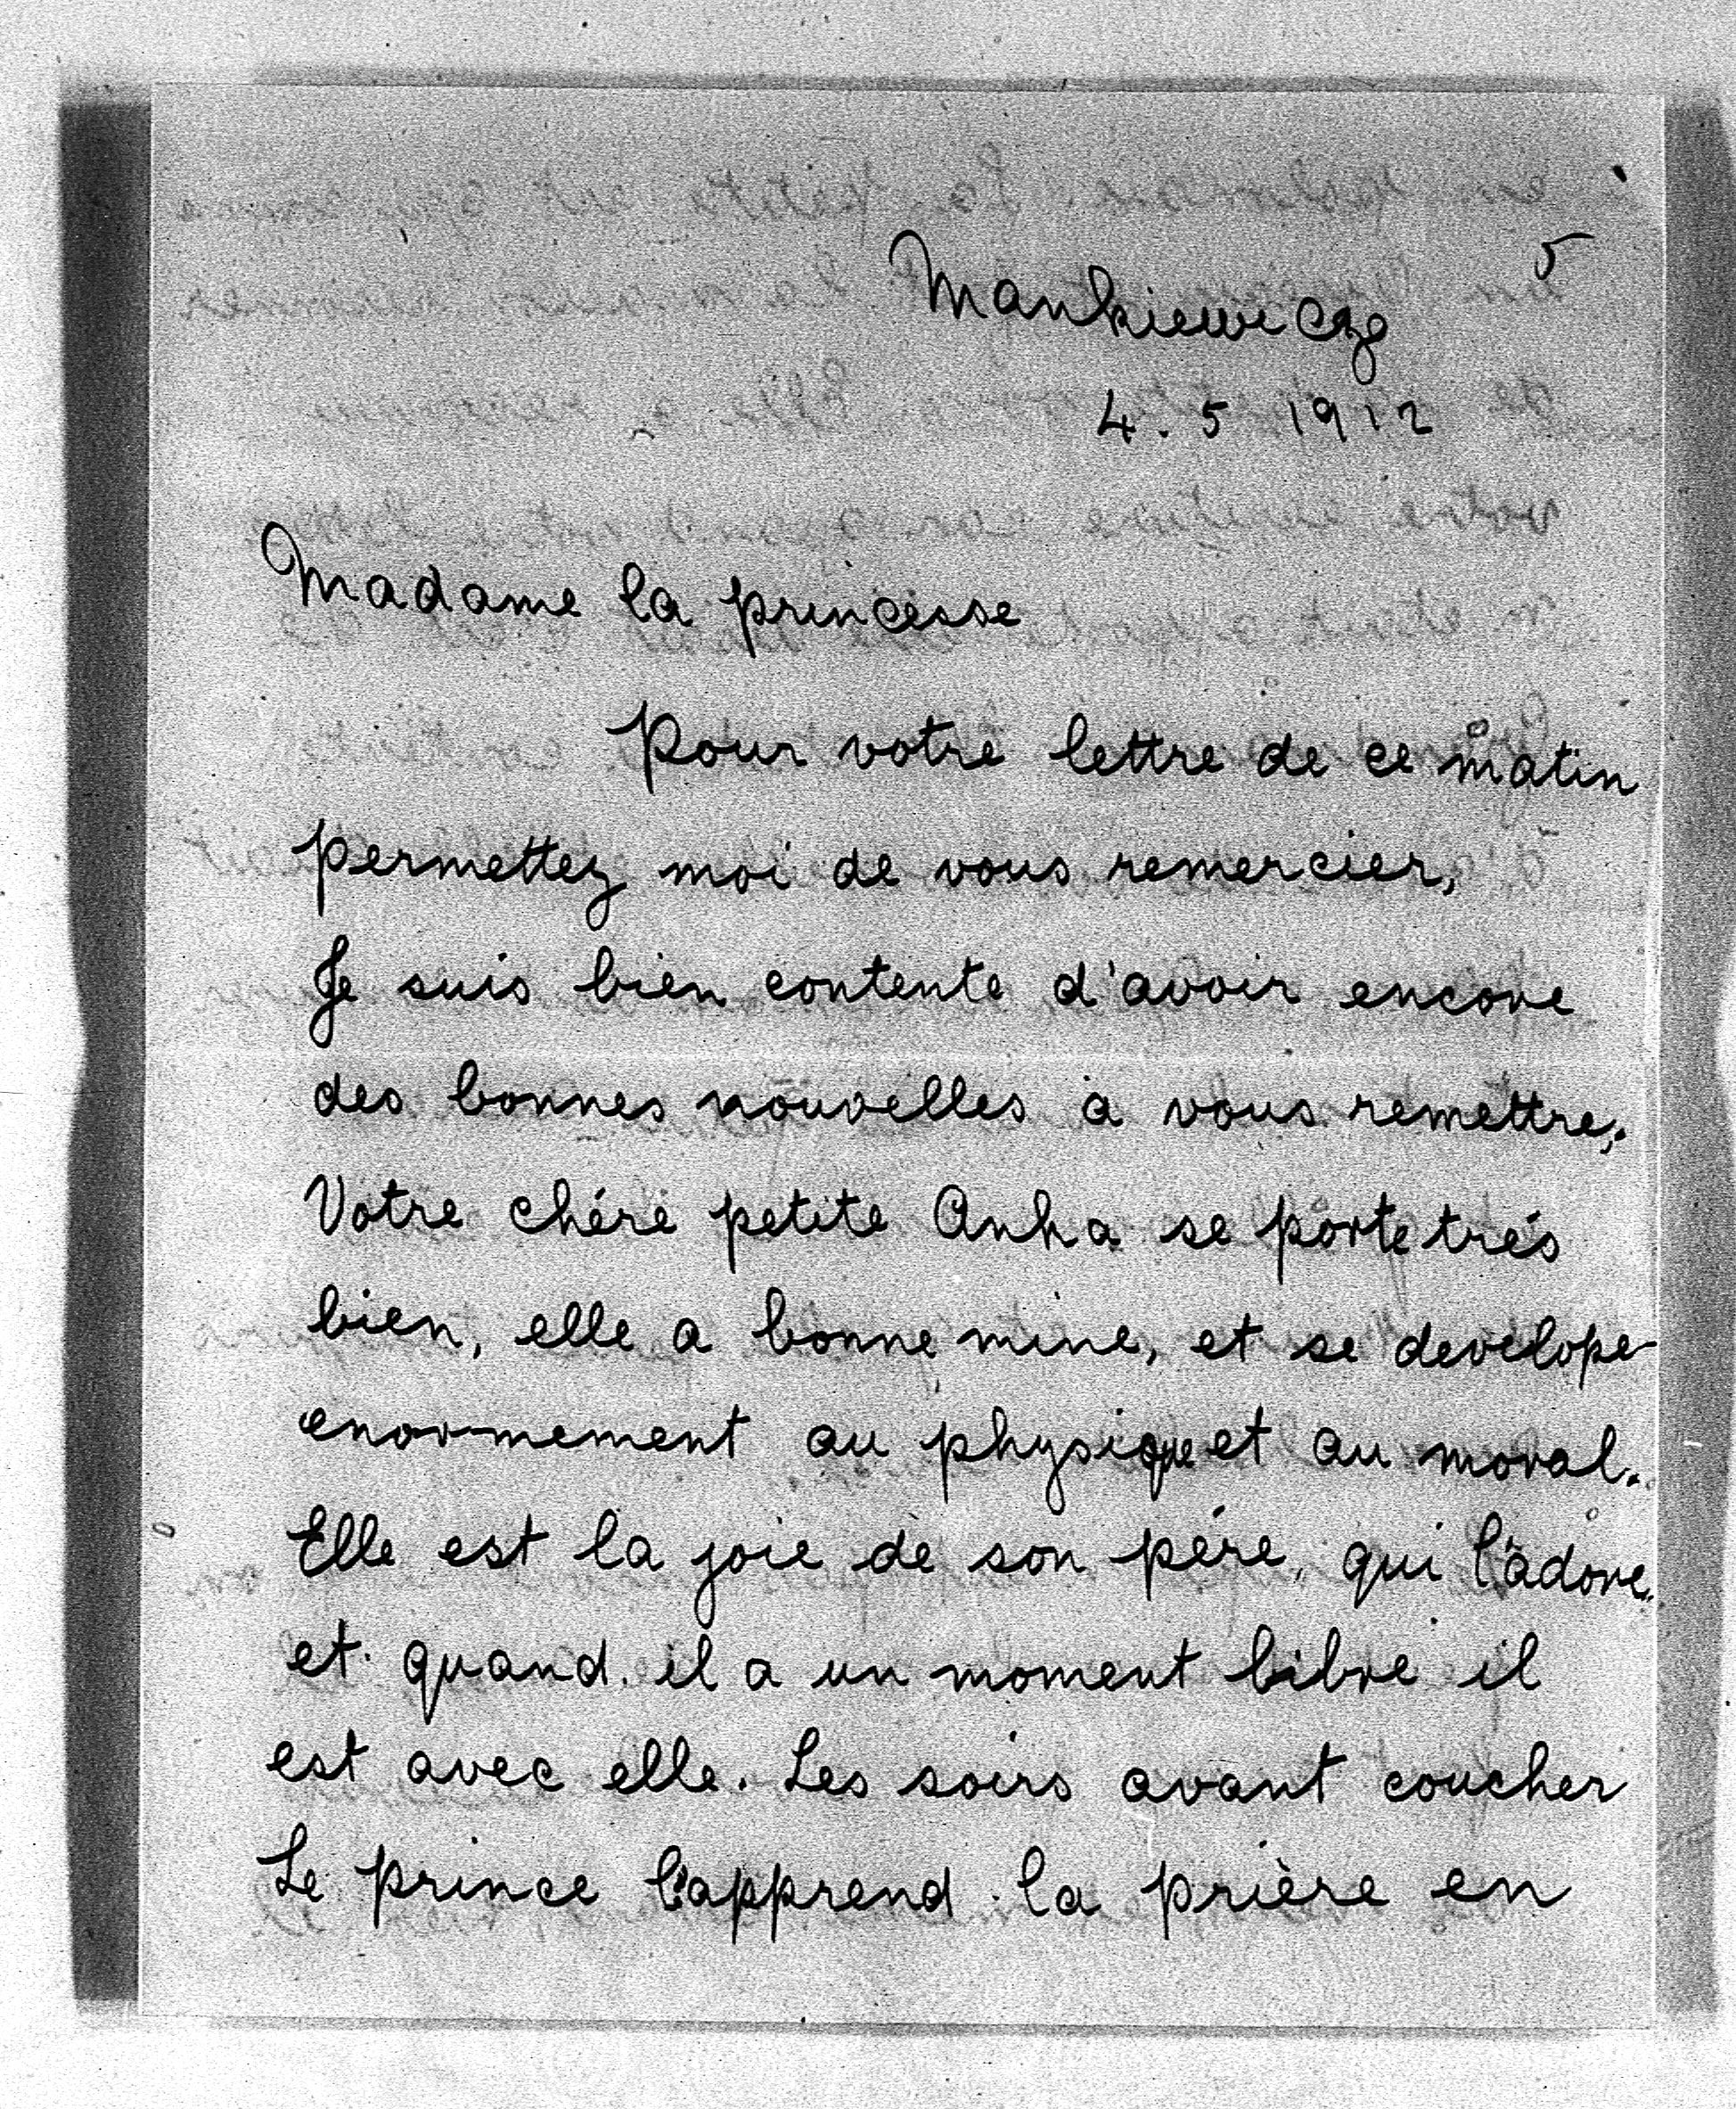 5
Mankiewicze
4. 5 1912
Madame la princesse
Pour votre lettre de ce matin
permettez moi de vous remercier,
Je suis bien contente d'avoir encore
des bonnes nouvelles à vous remettre,.
Votre chére petite Anka se porte trés
bien, elle a bonne mine, et se develope
enormement au physique et au moral.
Elle est la joie de son pére, qui l'adore.
et quand il a un moment libre il
est avec elle. Les soirs avant coucher
Le prince l'apprend la prière en